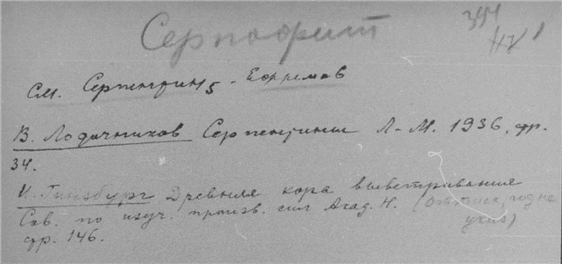 Серпофит
Н2/1
См. Серпентин 5 - Ефремов
В. Лодочников Серпентины Л-М. 1936, стр.
34.
И. Гинзбург Древняя кора выветривания
Сов. по изуч. произв. сил Акад. Н. (Оттиск, год не
указ)
стр. 146.